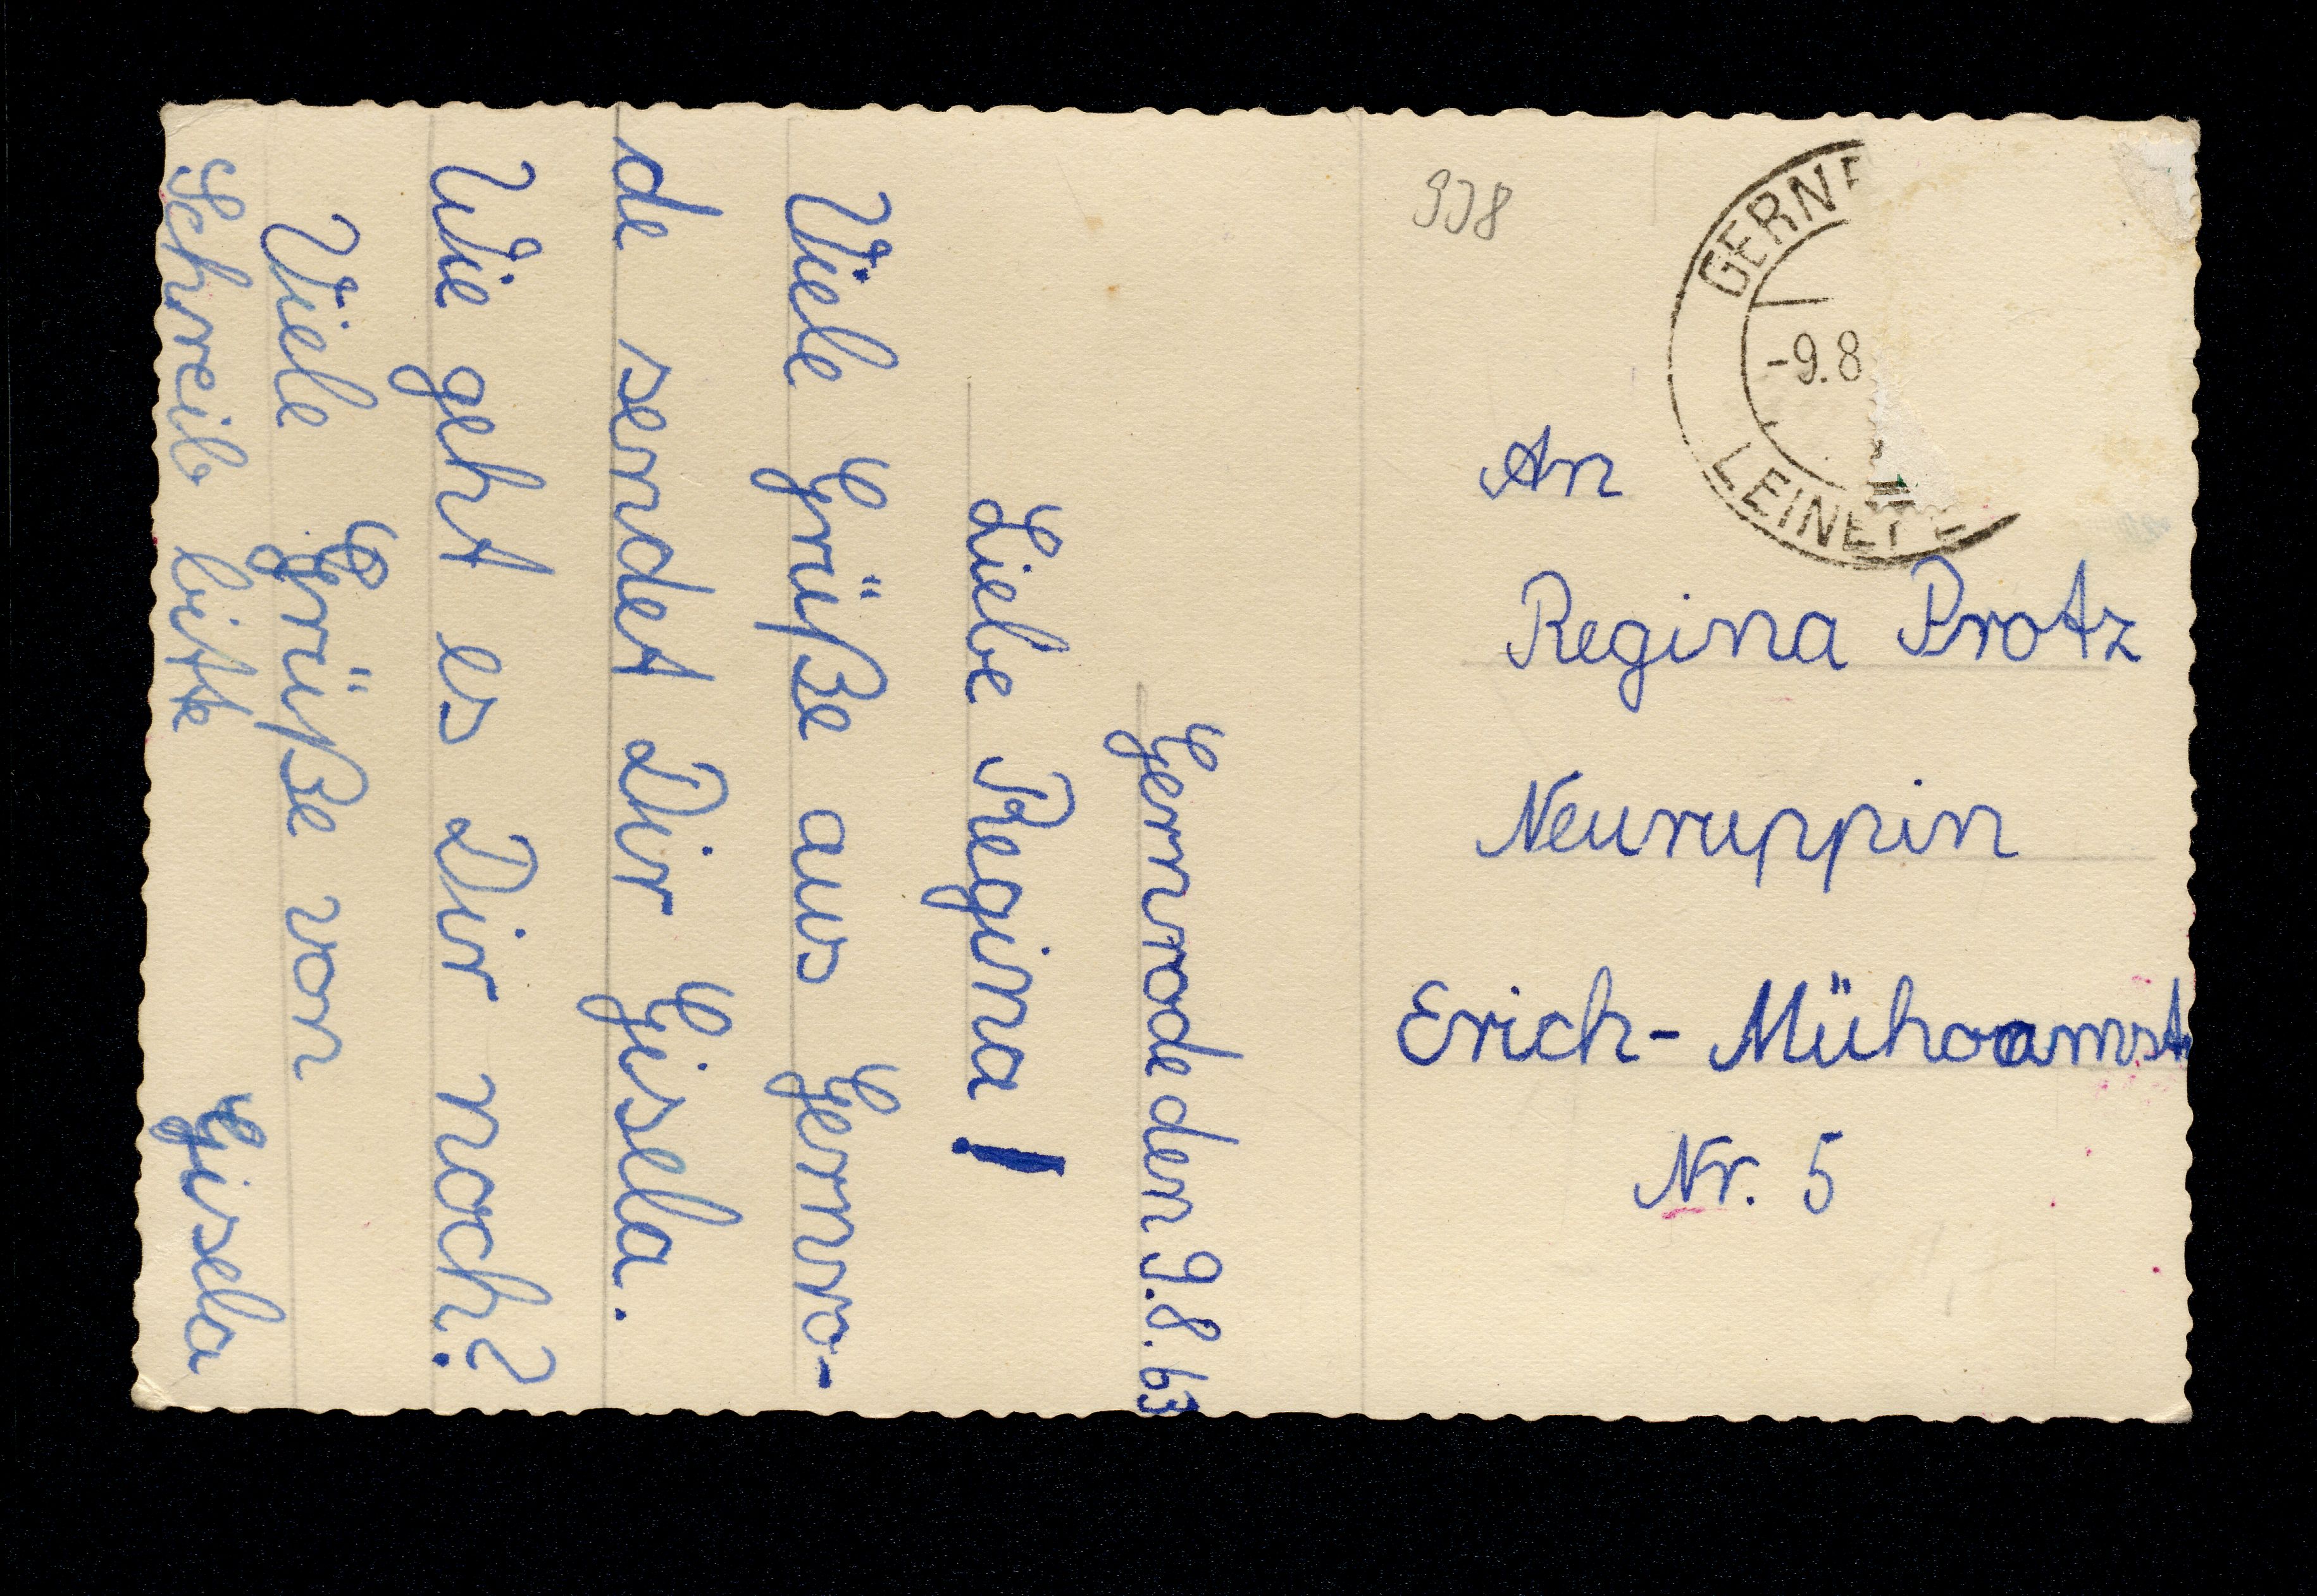 Gernrode den 9.8.63
Liebe Regina!
Viele Grüße aus Gernro-
de sendet Dir Gisela.
Wie geht es Dir noch?
Viele Grüße von
Schreib bitte Gisela
938
-9.8
An
Regina Protz
Neuruppin
Erich-Mühsamst
Nr. 5